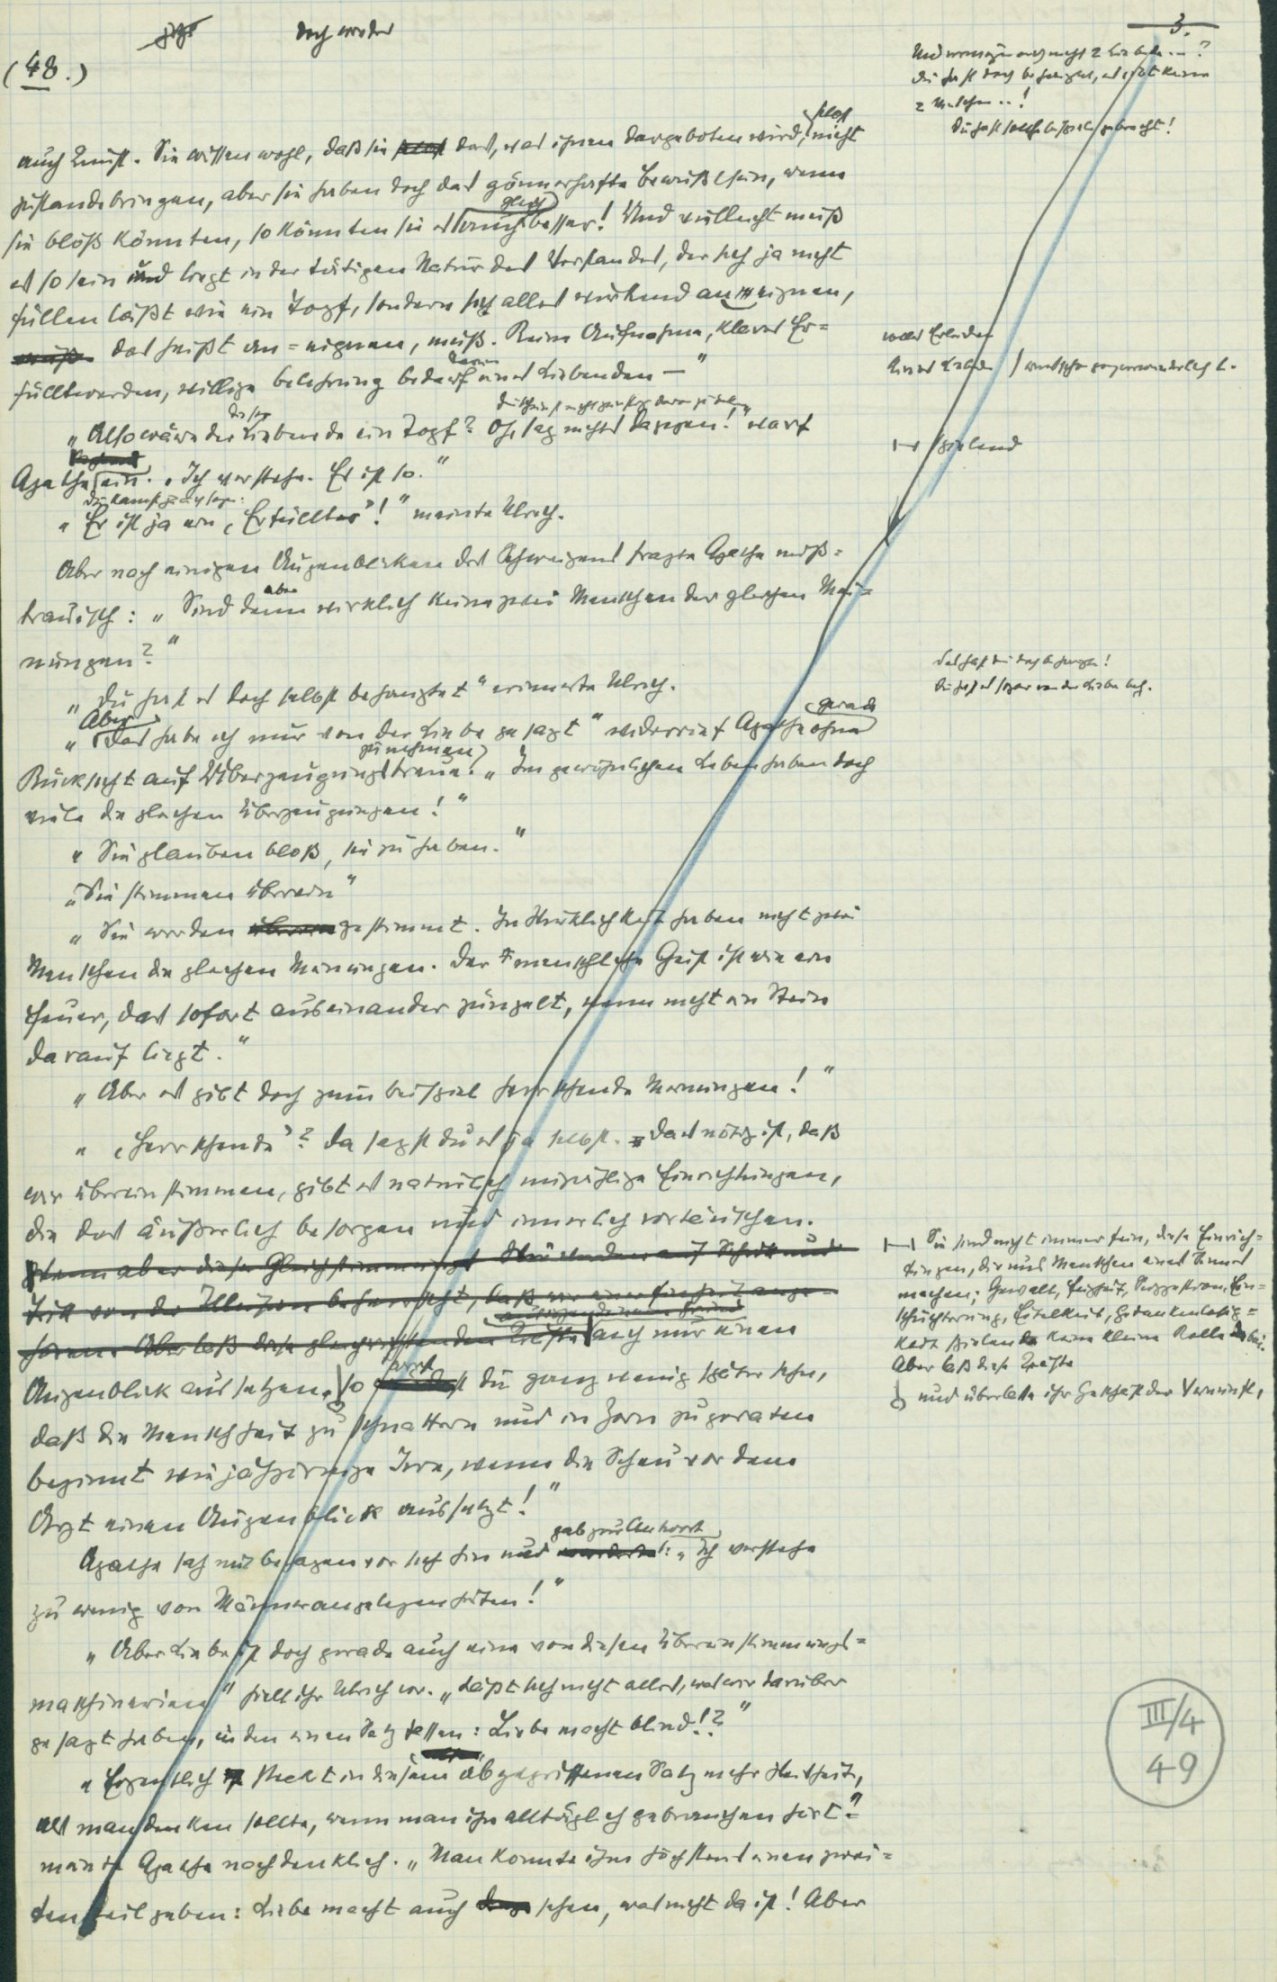 doch weder
3.
(48.)
Und
auch Kunst. Sie wissen wohl, daß sie das, was ihnen dargeboten wird, bloß nicht
zustandebringen, aber sie haben doch das gönnerhafte Bewußtsein, wenn
sie bloß könnten, so könnten sie es gleich auch besser! Und vielleicht muß
es so sein und liegt in der tätigen Natur des Verstandes, der sich ja nicht
füllen läßt wie ein Topf, sondern sich alles wirkend aneignen,
das heißt an=eignen, muß. Reine Aufnahme, klares Er=
fülltwerden, willige Belehrung bedarf eines Liebenden —"
„Also wäre der Liebende ein Topf? Oh, sag nichts dagegen!" warf
Agathe ein. „Ich verstehe. Er ist so."
du kannst ja auch sagen:
„Er ist ja ein ‚Erfüllter'!" meinte Ulrich.
Aber nach einigen Augenblicken des Schweigens fragte Agathe miß=
trauisch: „Sind denn aber wirklich keine zwei Menschen der gleichen Mei=
nungen?"
Das hast du doch behauptet!
„Du hast es doch selbst behauptet" erinnerte Ulrich.
„Aber das habe ich nur von der Liebe gesagt" widerrief Agathe ohne gerade
Rücksicht auf Überzeugungstreue zu nehmen. „Im gewöhnlichen Leben haben doch
viele die gleichen Überzeugungen!"
„Sie glauben bloß, sie zu haben."
„Sie stimmen überein"
„Sie werden gestimmt. In Wirklichkeit haben nicht zwei
Menschen die gleichen Meinungen. Der menschliche Geist ist wie ein
Feuer, das sofort auseinander züngelt, wenn nicht ein Stein
darauf liegt."
„Aber es gibt doch zum Beispiel herrschende Meinungen!"
„‚Herrschende'? Da sagst du es ja selbst. Da es nötig ist, daß
wir übereinstimmen, gibt es natürlich unzählige Einrichtungen,
die das äußerlich besorgen und innerlich vortäuschen.
Sie sind nicht immer fein, diese Einrich=
tungen, die uns Menschen eines Sinnes
machen; Gewalt, Feigheit, Suggestion, Ein=
schüchterung, Eitelkeit, Gedankenlosig=
keit spielen keine kleine Rolle dabei.
Aber laß diese Kräfte
auch nur einen
Augenblick aussetzen,
und überlaß ihr Geschäft der Vernunft,
so wirst du ganz wenig später sehn,
daß die Menschheit zu schnattern und in Zorn zu geraten
beginnt wie jähzornige Irre, wenn die Scheu vor dem
Arzt einen Augenblick aussetzt!"
Agathe sah mit Behagen vor sich hin und gab zur Antwort: „Ich verstehe
zu wenig von Männerangelegenheiten!"
„Aber Liebe ist doch gerade auch eine von diesen Übereinstimmungs=
maschinerien" hielt ihr Ulrich vor. „Läßt sich nicht alles, was wir darüber
gesagt haben, in den einen Satz fassen: Liebe macht blind!?"
„Eigentlich steckt in diesem abgegriffenen Satz mehr Wahrheit,
als man denken sollte, wenn man ihn alltäglich gebrauchen hört"
meinte Agathe nachdenklich. „Man könnte ihm höchstens einen zwei=
ten Teil geben: Liebe macht auch sehen, was nicht da ist! Aber
III/4
49